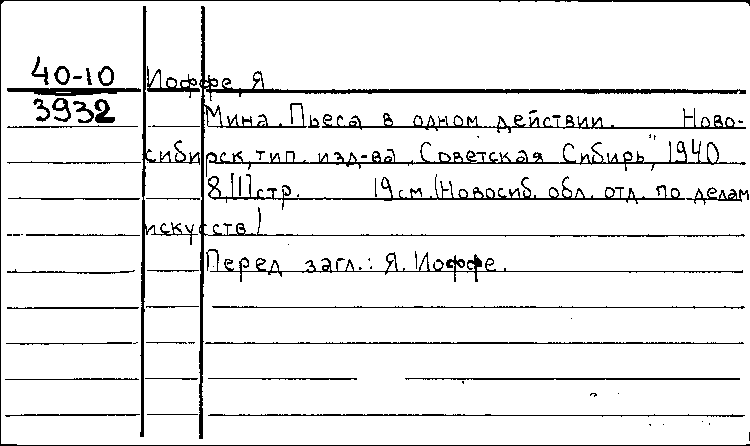 40-10
Иоффе, Я
3932
Мина. Пьеса в одном действии. Ново-
сибирск, тип. изд-ва „Советская Сибирь", 1940
8, [1] стр. 19 см. (Новосиб. обл. отд. по делам
искусств.)
Перед загл.: Я. Иоффе.